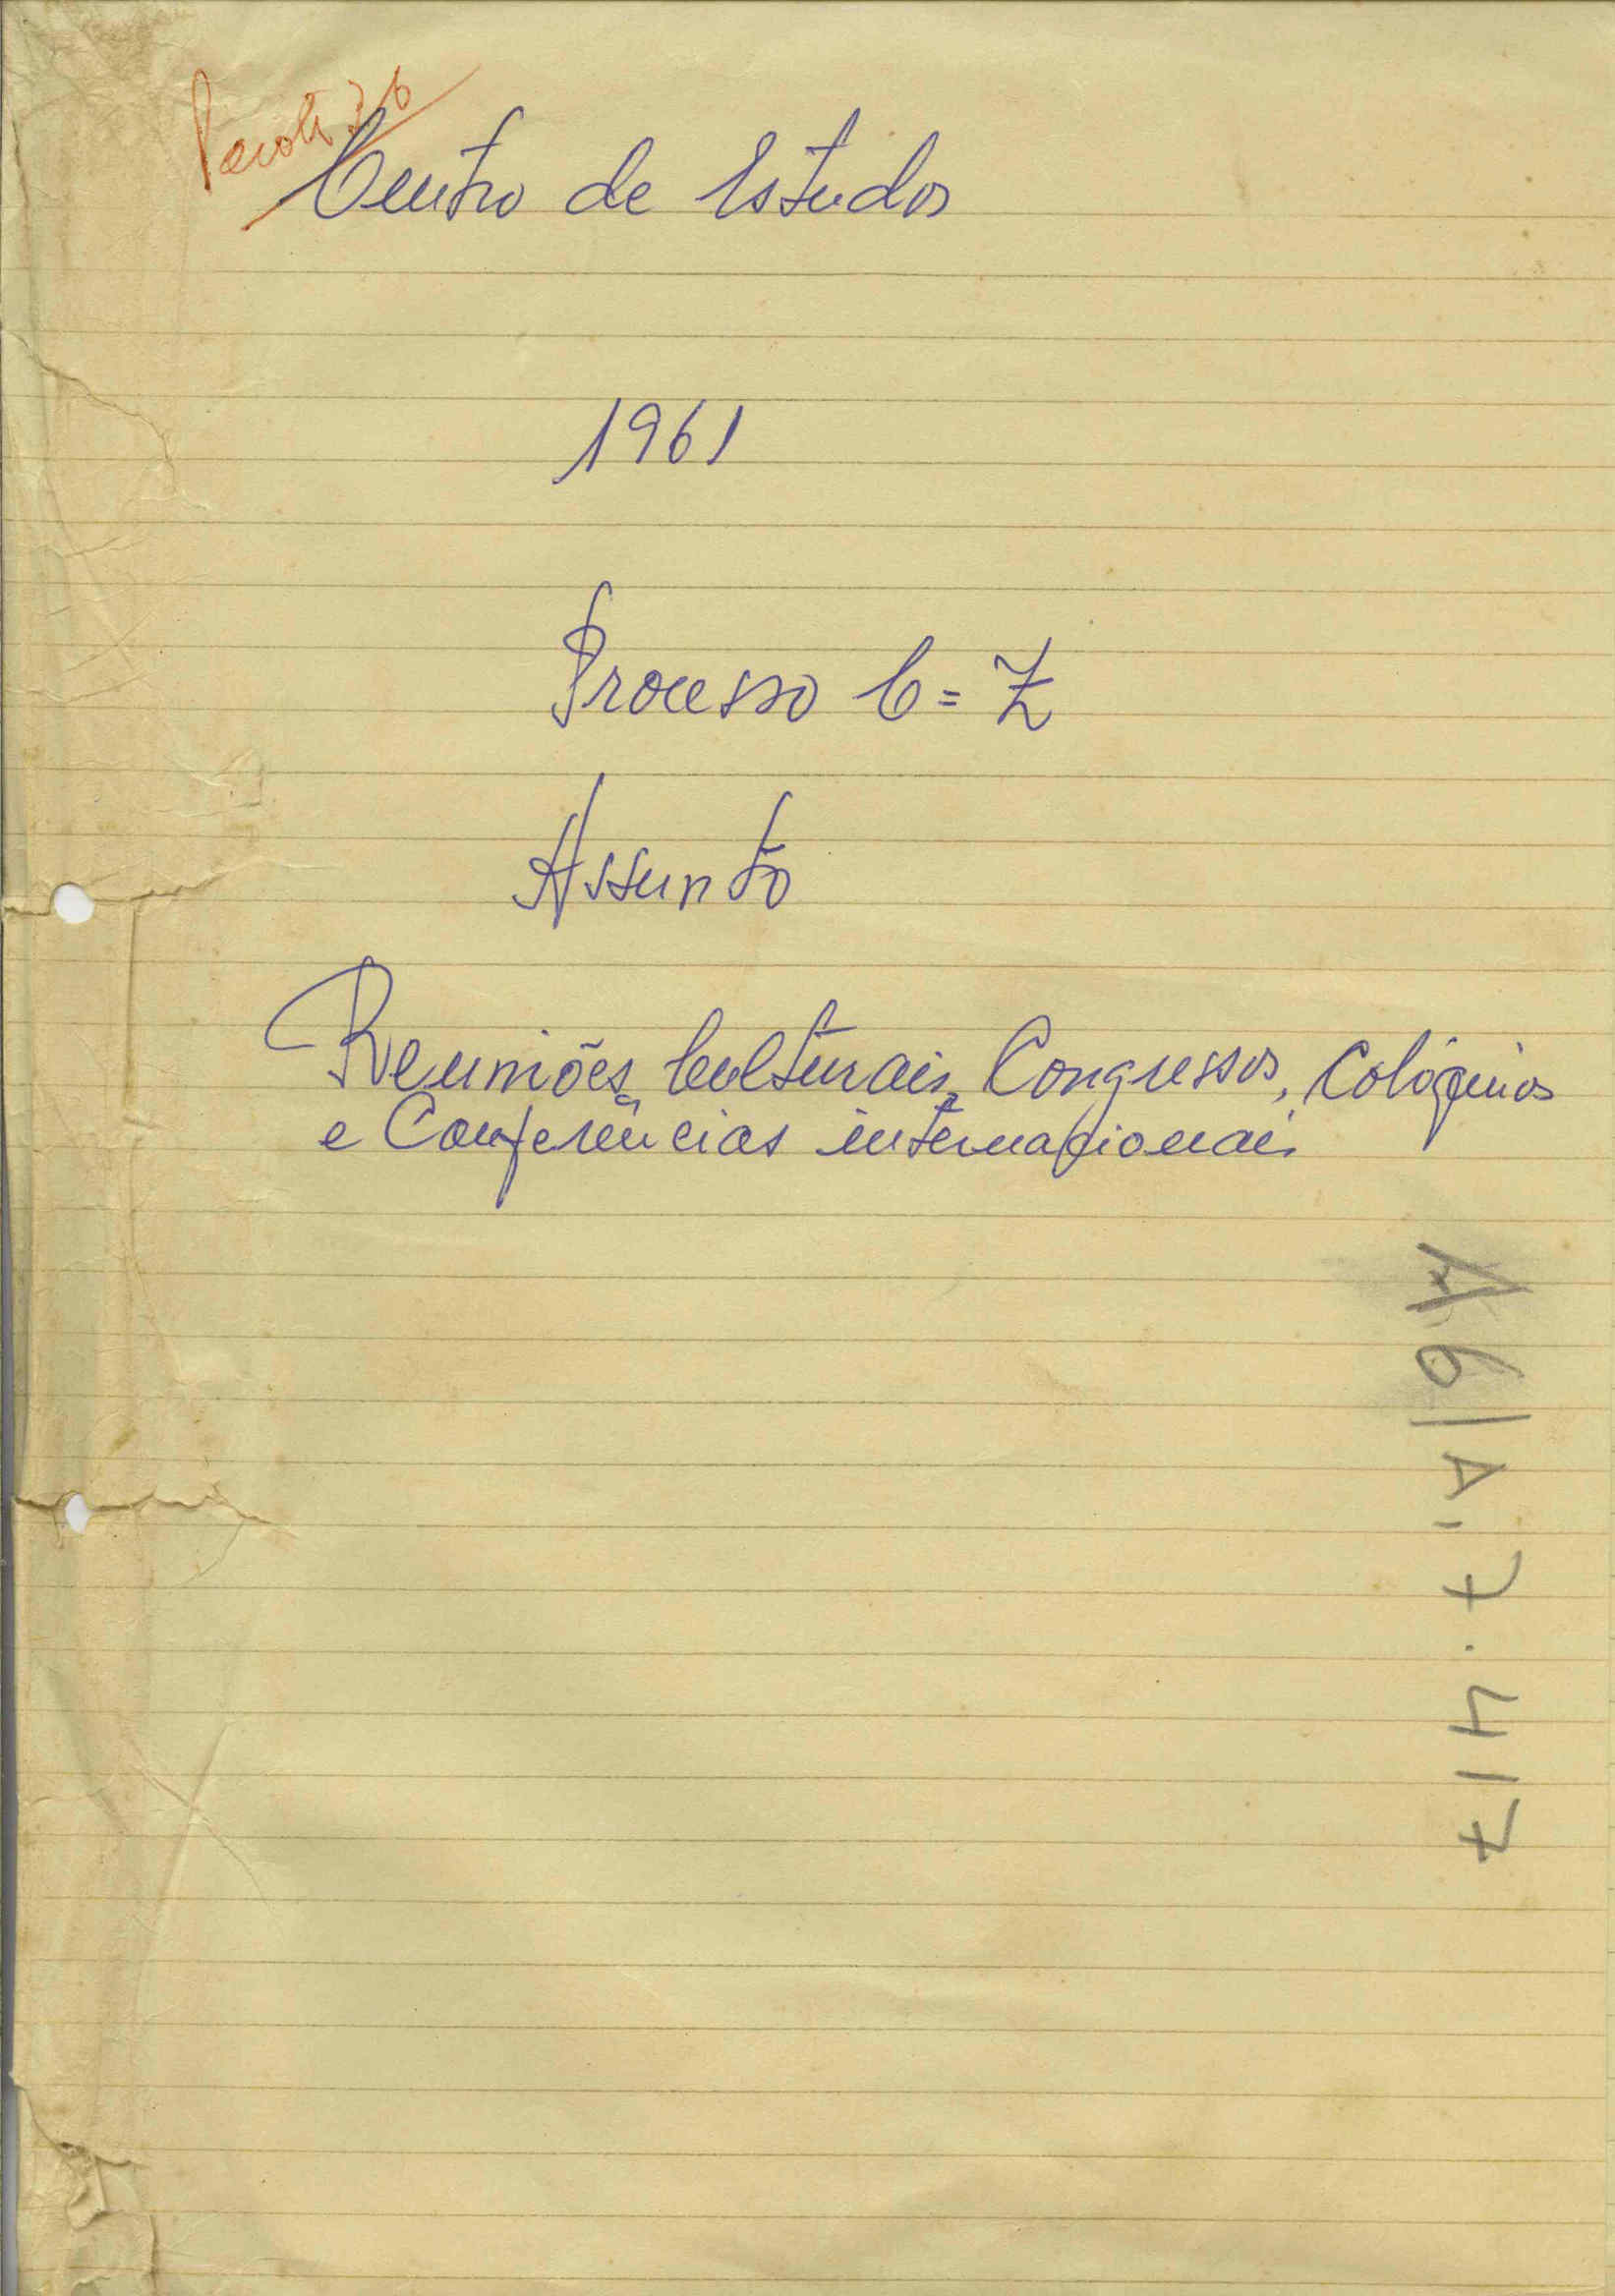 Centro de Estudos
1961
Processo C=7
Assunto
Reuniões Culturais, Congressos, Colóquios
e Conferências internacionais